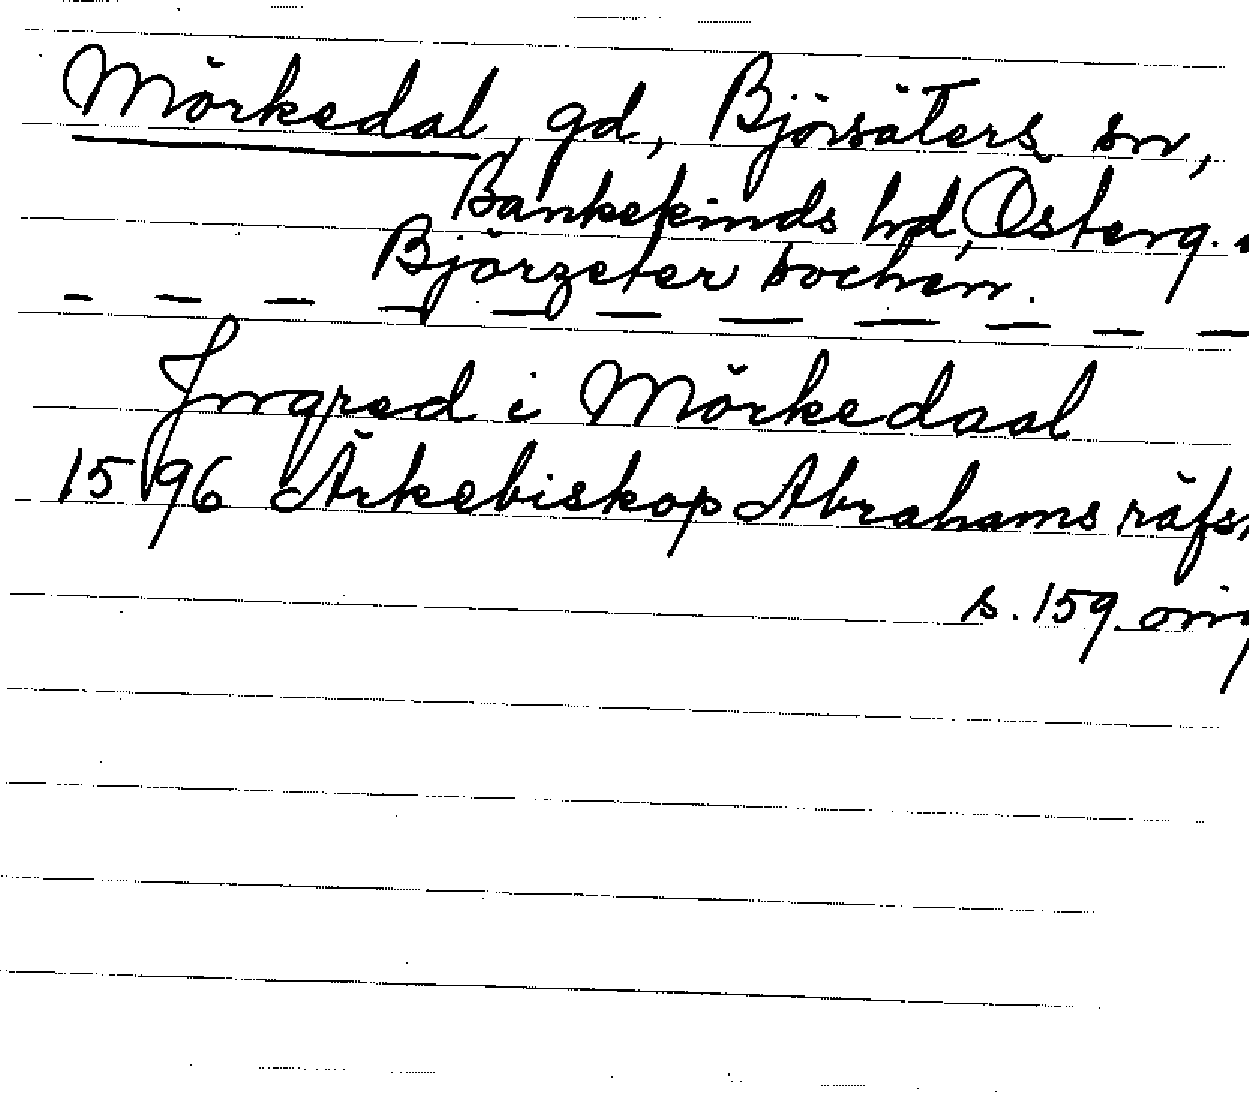 Mörkedal, gd, Björsäters sn,
Bankekinds hd, Österg.
Björzeter sochen.
Jngred i Mörkedaal
1596 Ärkebiskop Abrahams räfs
s. 159 orig